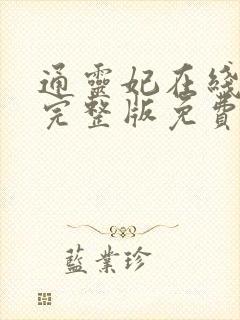 通靈妃在綫
完整版免費
藍業珍